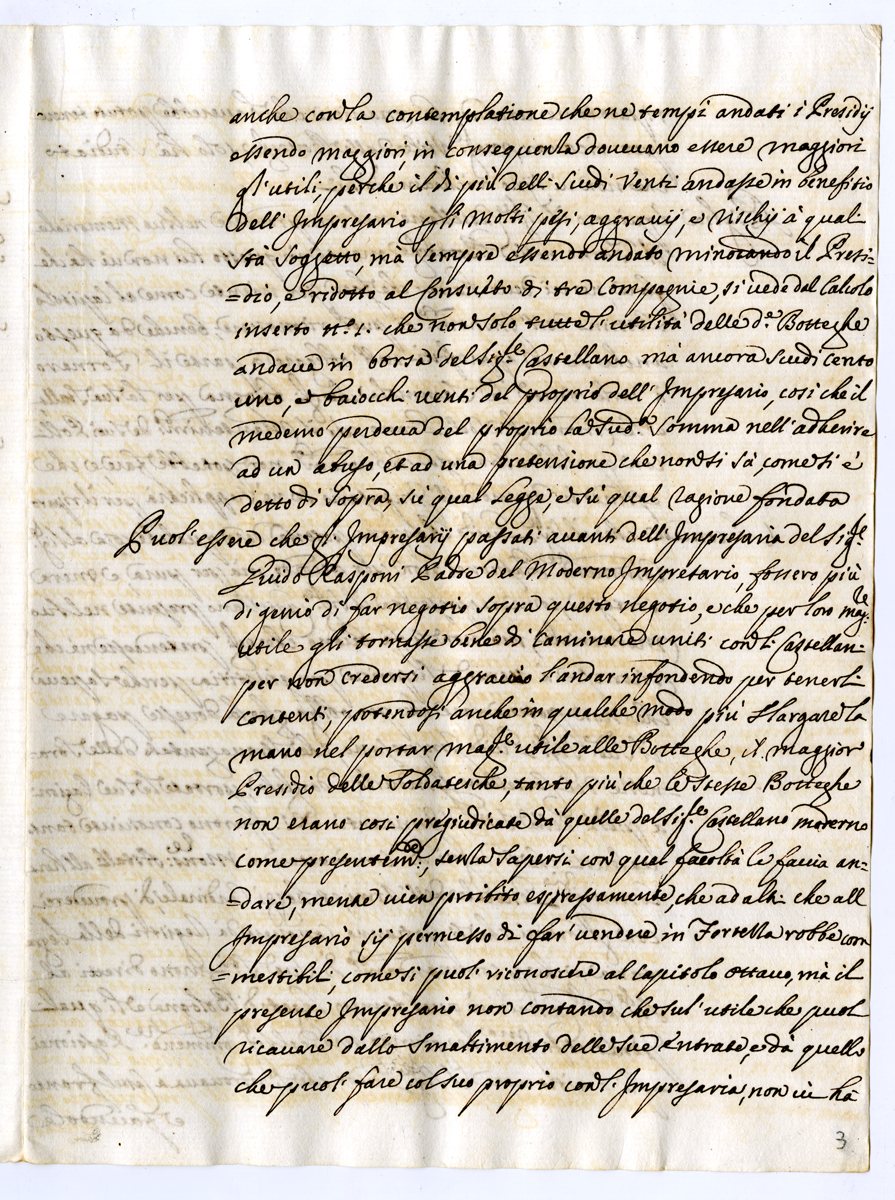 anche con la contemplatione che ne tempi andati i Presidij
essendo maggiori, in consequenza doueuano essere maggiori
gl'utili, perche il di più delli Scudi Venti andasse in benefitio
dell'Impresario p gli molti pesi, aggrauij, e rischij à quali
stà soggetto, mà sempre essendo andato minorando il Presi=
=dio, e ridotto al Consueto di tre Compagnie, si uede dal Calcolo
inserto n.º 1. che non solo tutte l'utilità delle d.e Botteghe
andaua in borsa del Sig.re Castellano mà ancora Scudi cento
uno, e baiocchi uenti del proprio dell'Impresario, cosi che il
medemo perdeua del proprio la Sud.a Somma nell'adherire
ad un abuso, et ad una pretensione che non si sà come si è
detto di sopra, sù qual Legge, e sù qual ragione fondata
Puol'essere che gl'Impresarij passati auanti dell'Impresaria del Sig.re
Guido Rasponi Padre del Moderno Impresario, fossero più
di genio di far negotio sopra questo negotio, e che per loro mag.re
utile gli tornasse bene di Caminare uniti con li Castellani
per non credersi aggrauio l'andar infondendo per tenerli
contenti, potendosi anche in qualche modo più slargare la
mano nel portar mag.re utile alle Botteghe, il maggior
Presidio delle Soldatesche, tanto più che le stesse Botteghe
non erano cosi pregiudicate dà quelle del Sig.re Castellano moderno
come presentem.te, senza sapersi con qual facoltà le faccia an=
=dare, mentre uien proibito espressamente, che ad altri che all
Impresario sij permesso di far uendere in Fortezza robbe com
=mestibili, come si puol riconoscere al Capitolo ottauo, mà il
presente Impresario non contando che sul'utile che puol
ricauare dallo Smaltimento delle sue Entrate, e dà quello
che puol fare col suo proprio con l'Impresaria, non ui hà
3